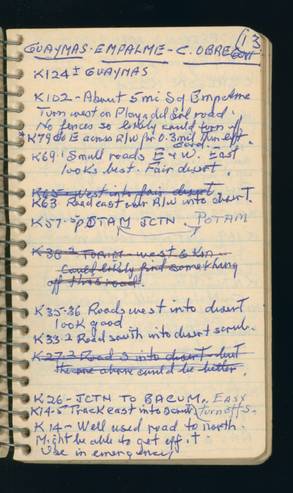 13
GUAYMAS - EMPALME - C. OBREGON
K124± GUAYMAS
K102 - About 5 mi S of Empalme
Turn west on Playa del Sol road.
No fences so likely could turn off
*K79 do E across R/W for 0.3 mi Turn off
Good.
K69 ± Small roads E & W. East
looks best. Fair desert.
K65 - West into fair desert
K63 Road east over R/W into desert.
K57 - POTAM JCTN. POTAM
K38 - 2 TORIM - west 6 Km
Could likely find something
off this road.
K35-36 Roads west into desert
look good
K33-2 Road south into desert scrub.
K27-3 Road S into desert - but
the one above could be better.
K26 - JCTN TO BACUM. Easy
K14-5 Track east into scrub turnoffs.
K14 - Well used road to north.
Might be able to get off it.
Use in emergency